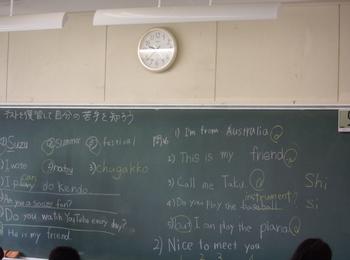 テストを復習して自分の苦手を知ろう
① Suzu ② Summer ③ festival
wote ④ natsu ⑤ chugakko
I play do kendo.
can
Are you a soccer fan?
Do you watch YouTube every day?
He is my friend.
1) I'm from Australia
2) This is my friend
3) Call me Taku. Shi
4) Do you play the baseball Si
instrument?
5) but I can play the piano
2) Nice to meet you
2 3 4